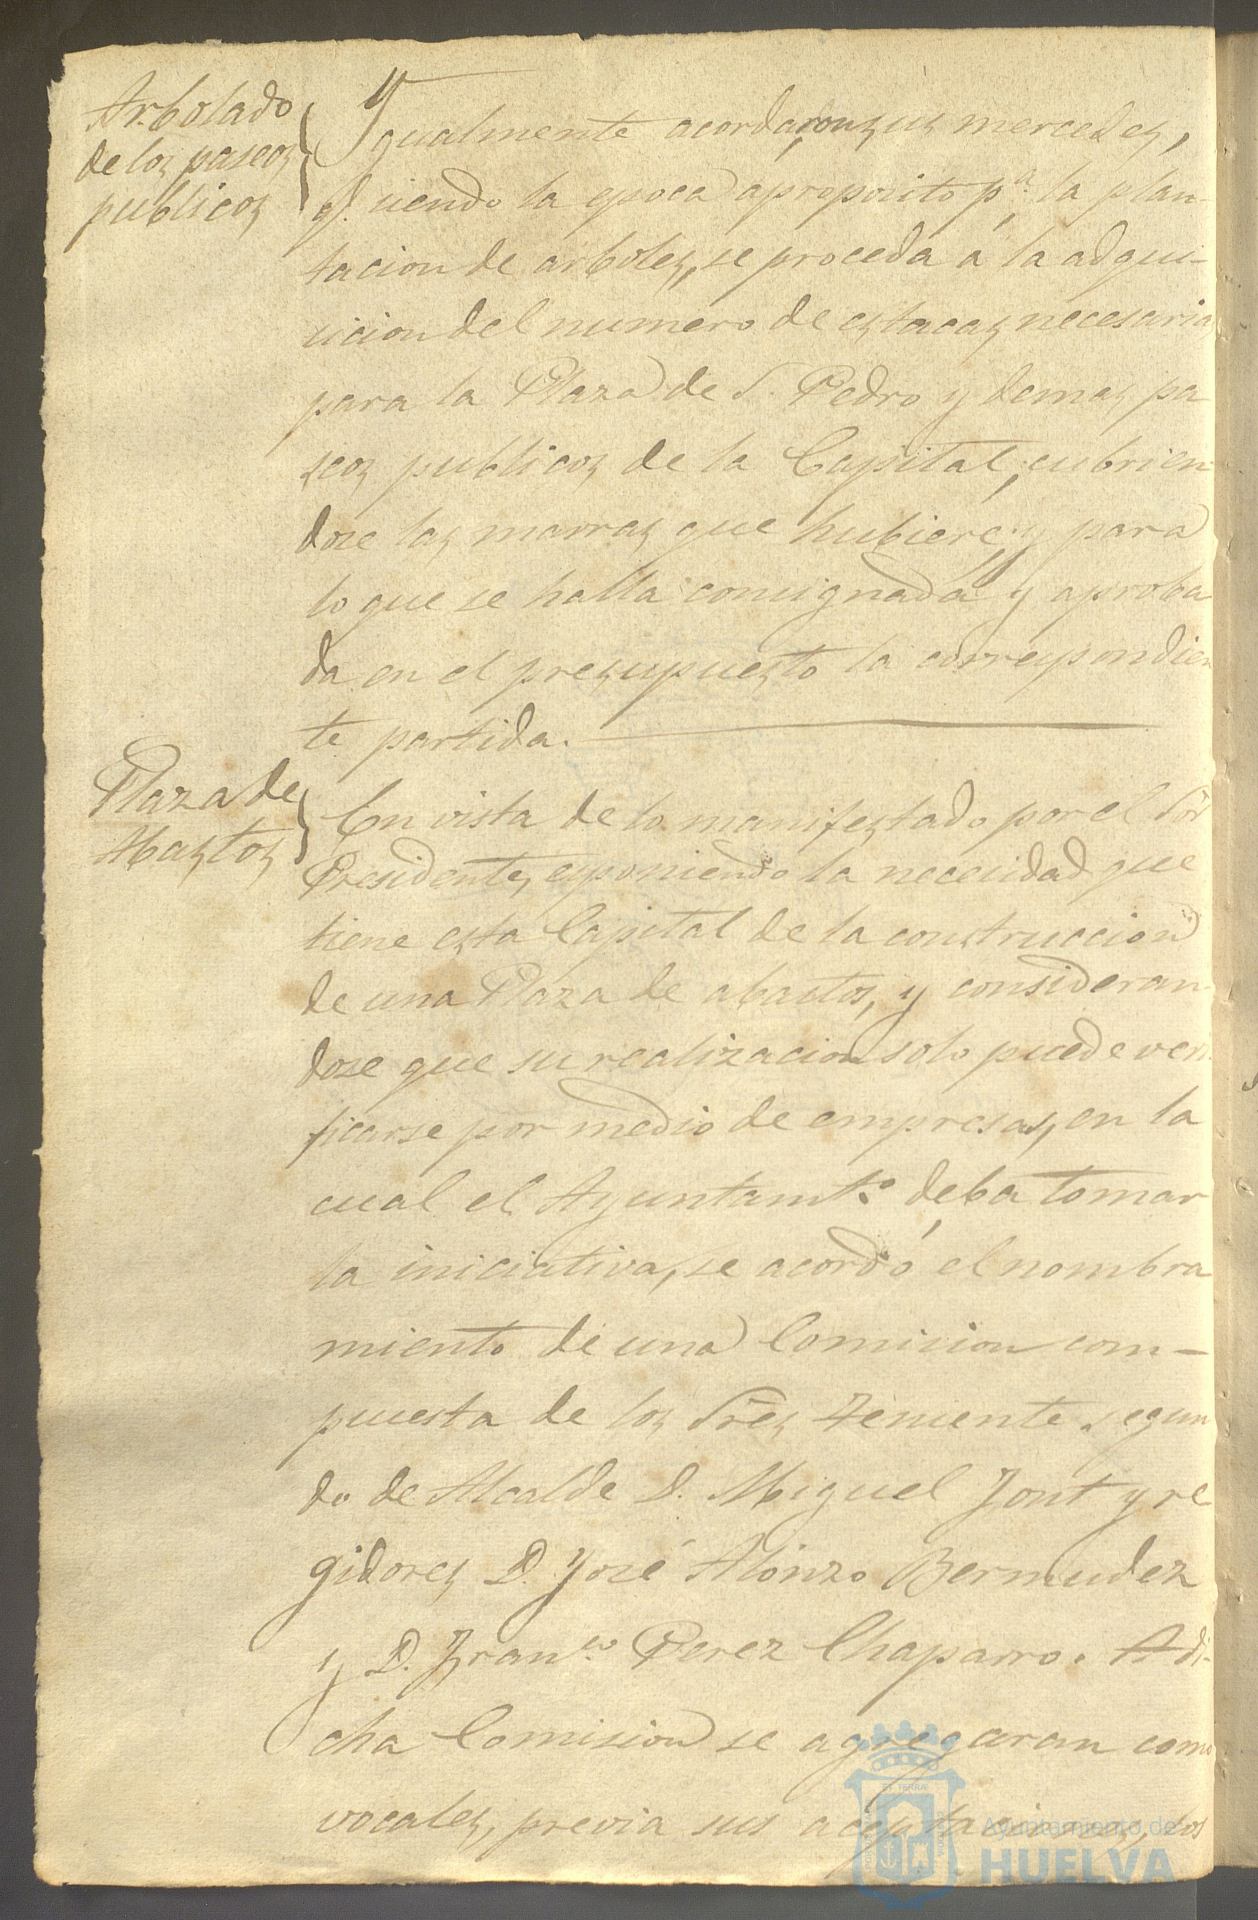 Arbolado
de los paseos
publicos
Ygualmente acordaron sus mercedes,
q. siendo la epoca aproposito p.ª la plan-
tacion de arboles, se proceda á la adqui-
sicion del numero de estacas necesaria
para la Plaza de S. Pedro y demas pa-
seos publicos de la Capital, cubrien-
dose las marras que hubiere, y para
lo que se halla consignada y aproba
da en el presupuesto la correspondien
te partida.
Plaza de
Abastos
En vista de lo manifestado por el Sor
Presidente, esponiendo la necesidad que
tiene esta Capital de la construccion
de una Plaza de abastos, y consideran-
dose que su realizacion solo puede veri
ficarse por medio de empresas, en la
cual el Ayuntamt.º deba tomar
la iniciativa, se acordó el nombra
miento de una Comision com-
puesta de los Sres Teniente segun
do de Alcalde D. Miguel Jont y re
gidores D. José Alonzo Bermudez
y D. Fran.co Perez Chaparro. A di-
cha Comision se agregaran como
vocales, previa sus aceptaciones, los
Ayuntamiento de
HUELVA